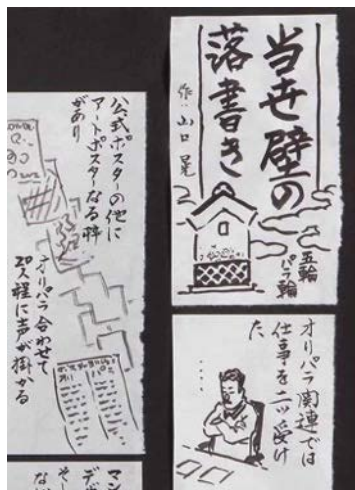 当世壁の
落書き
作：山口晃
五輪
パラ輪
オリパラ関連では
仕事を二ッ受け
た
公式ポスターの他に
アートポスターなる枠
があり
オリパラ合わせて
20人程に声が掛かる